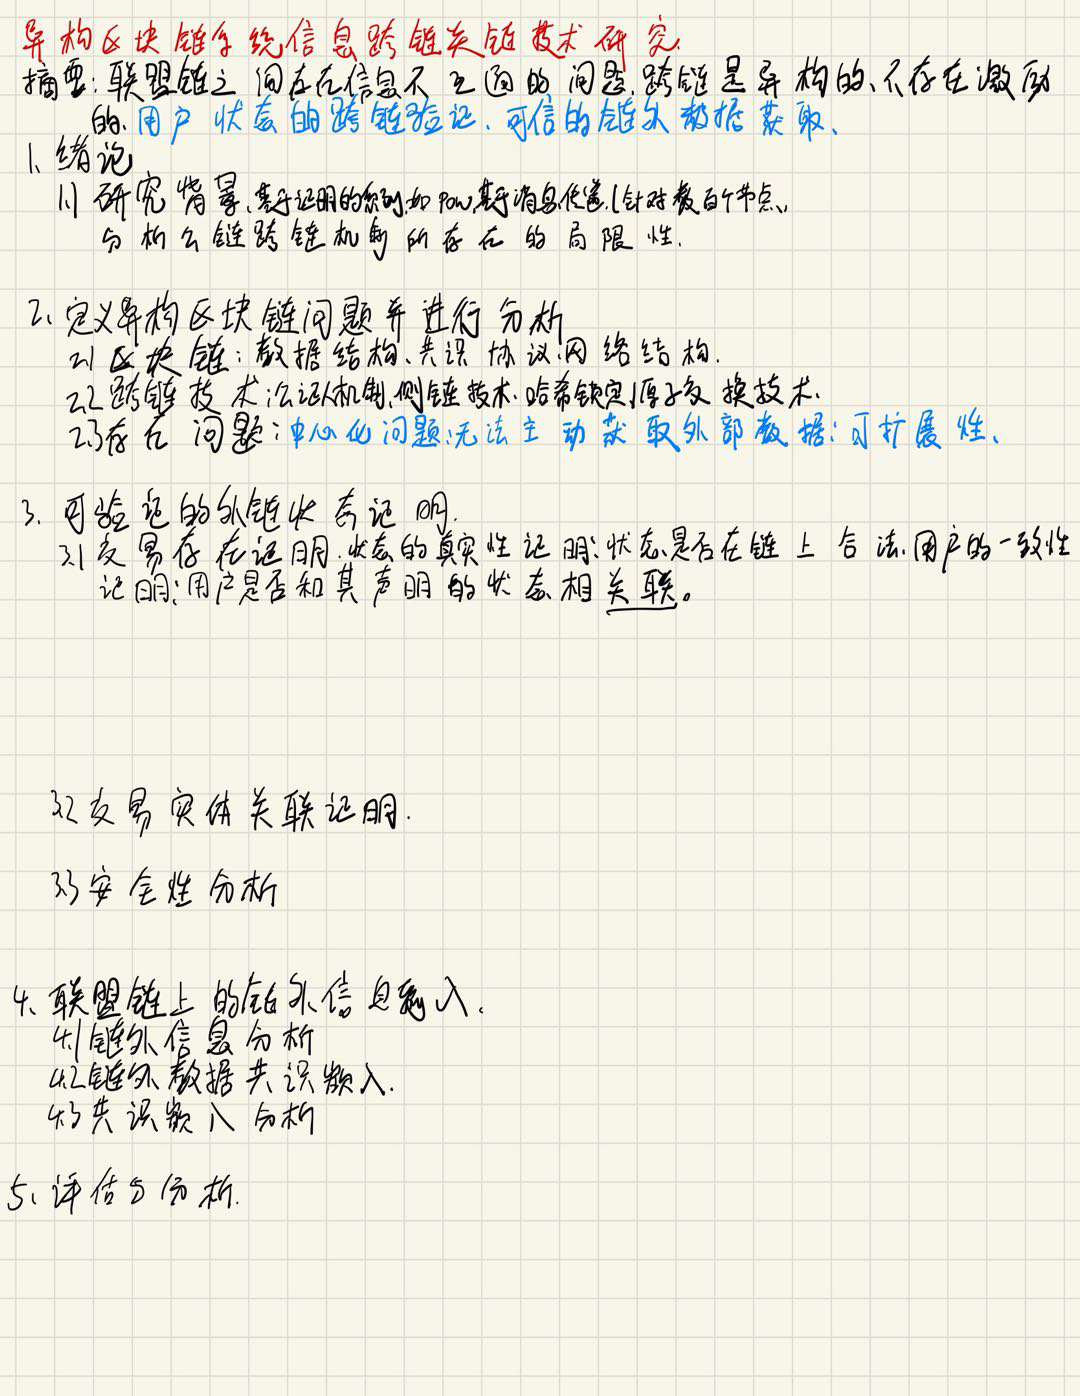 异构区块链系统信息跨链关键技术研究.
摘要:联盟链之间存在信息不互通的问题.跨链是异构的、不存在激励
的.用户状态的跨链验证、可信的链外数据获取、
1、绪论
1.1 研究背景、基于证明的系列,如pow,基于消息传递.(针对数百个节点、
分析公链跨链机制所存在的局限性.
2、定义异构区块链问题并进行分析
2.1 区块链:数据结构、共识协议、网络结构.
2.2 跨链技术:公证人机制、侧链技术.哈希锁定、原子交换技术.
2.3 存在问题:中心化问题;无法主动获取外部数据;可扩展性、
3. 可验证的外链状态证明.
3.1 交易存在证明.状态的真实性证明:状态是否在链上合法.用户的一致性
证明:用户是否和其声明的状态相关联。
3.2 交易实体关联证明.
3.3 安全性分析
4、联盟链上的链外信息入.
4.1 链外信息分析
4.2 链外数据共识嵌入.
4.3 共识嵌入分析
5、评估与分析.